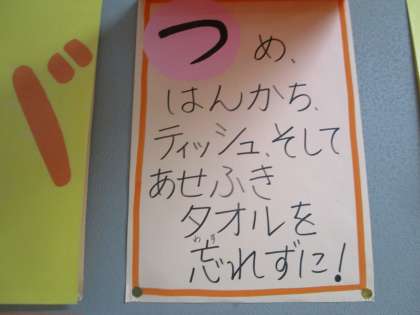 ド
つめ、
はんかち、
ティッシュ、そして
あせふき
タオルを
忘れずに！